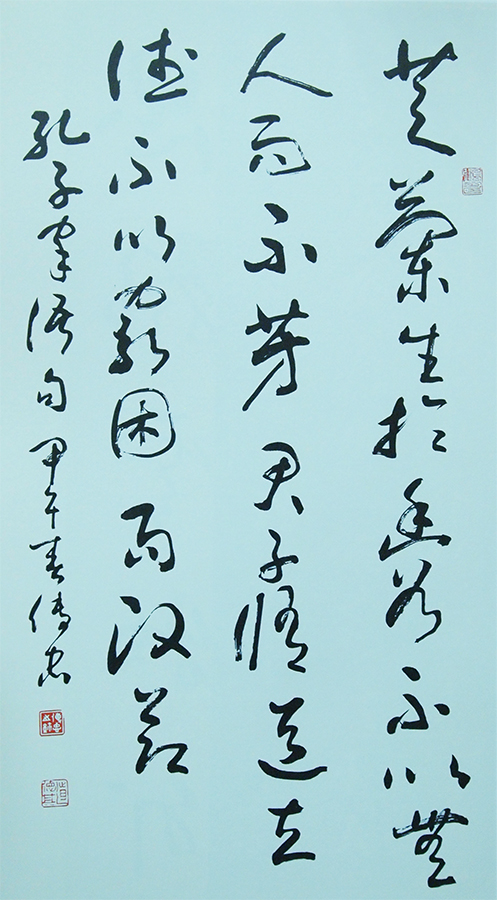 芝蘭生於幽谷不以無
人而不芳君子修道立
德不以窮困而改節
孔子家語句甲午春傳忠